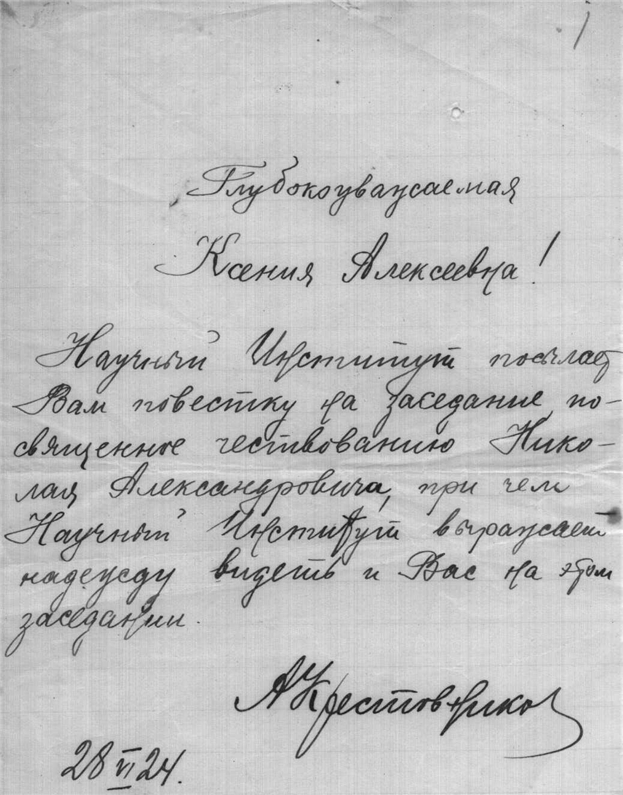 Глубокоуважаемая
Ксения Алексеевна!
Научный Институт посылает
Вам повестку на заседание, по-
священное чествованию Нико-
лая Александровича, при чем
Научный Институт выражает
надежду видеть и Вас на этом
заседании.
АКрестовников
28 VI 24.